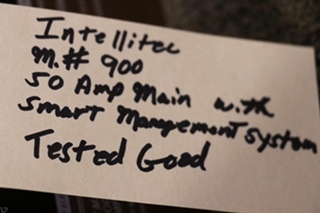 Intellitec
M.# 900
50 Amp Main with
Smart Management System
Tested Good